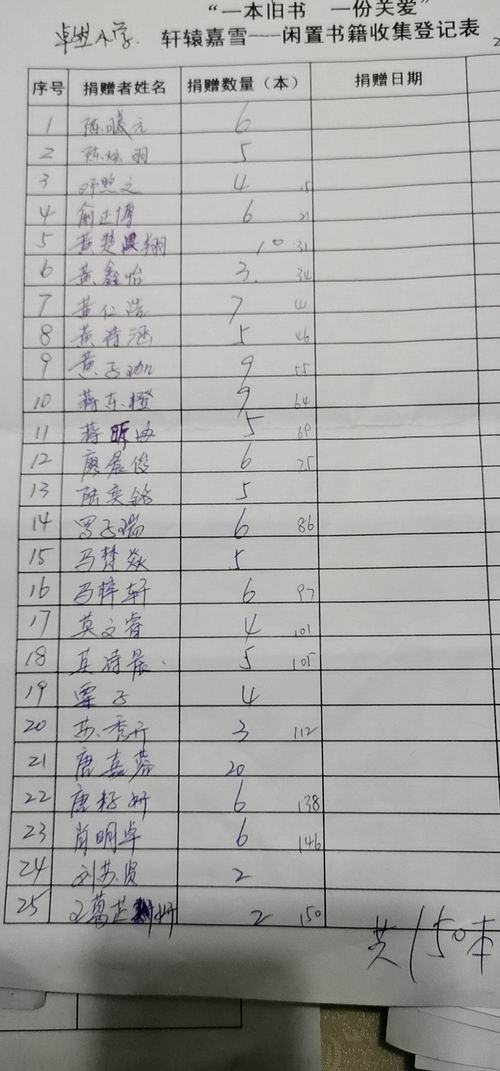 “一本旧书 一份关爱”
小学. 轩辕嘉雪——闲置书籍收集登记表
序号 捐赠者姓名 捐赠数量（本） 捐赠日期
1 陈曦元 6
2 陈 羽 5
3 之 4 15
4 俞正博 6 21
5 黄楚 翔 10 31
6 黄鑫怡 3. 34
7 黄仁浩 7 41
8 黄诗涵 5 46
9 黄子珈 9 55
10 蒋东橙 9 64
11 蒋昕 5 69
12 廖晨俊 6 75
13 陆奕铭 5
14 罗子瑞 6 86
15 马梦焱 5
16 马梓轩 6 97
17 莫文睿 4 101
18 莫诗晨. 5 105
19 覃子 4
20 苏秀 3 112
21 唐嘉蓉 20
22 唐籽妍 6 138
23 肖明卓 6 146
24 刘苏贤 2
25 王葛芷 妍 2 150
共150本